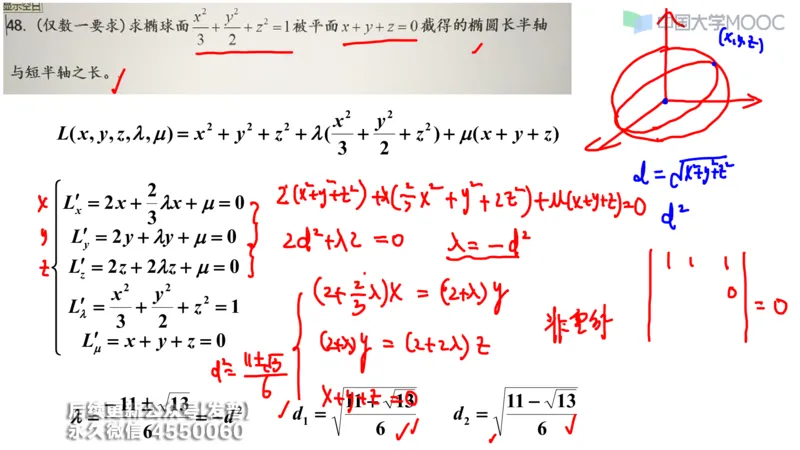 显示空白
中国大学MOOC
48. (仅数一要求)求椭球面 x²/3 + y²/2 + z² = 1 被平面 x + y + z = 0 截得的椭圆长半轴
与短半轴之长。
(x,y,z)
L(x, y, z, λ, μ) = x² + y² + z² + λ(x²/3 + y²/2 + z²) + μ(x + y + z)
d = √(x²+y²+z²)
d²
x L′x = 2x + 2/3 λx + μ = 0
y L′y = 2y + λy + μ = 0
z L′z = 2z + 2λz + μ = 0
L′λ = x²/3 + y²/2 + z² = 1
L′μ = x + y + z = 0
2(x²+y²+z²) + λ(2/3 x² + y² + 2z²) + μ(x+y+z) = 0
2d² + λ2 = 0 λ = −d²
(2+2/3 λ)x = (2+λ)y
(2+λ)y = (2+2λ)z
x+y+z = 0
非零解
| 1 1 1
0 | = 0
d² = 11±√13/6
λ = −11 ± √13/6 = −d²
d₁ = √(11 + √13/6) d₂ = √(11 − √13/6)
永久微信 4550060